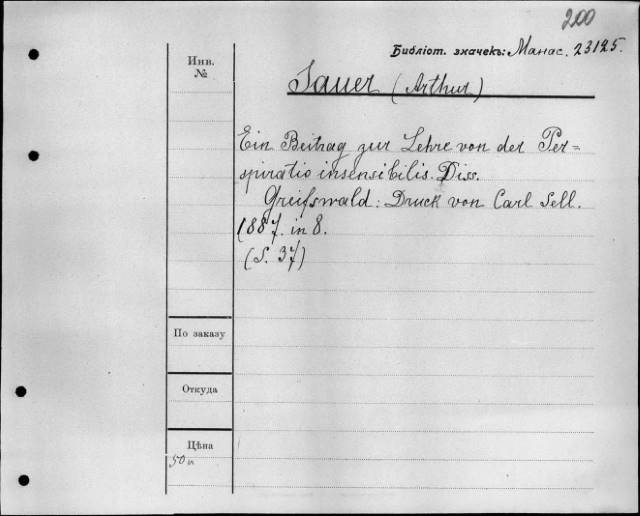 200
Библіот. значекъ: Манас. 23125.
Инв.
№
Sauer (Arthur)
Ein Beitrag zur Lehre von der Per=
spiratio insensibilis. Diss.
Greifswald: Druck von Carl Sell.
1887. in 8.
(S. 37)
По заказу
Откуда
Цѣна
50